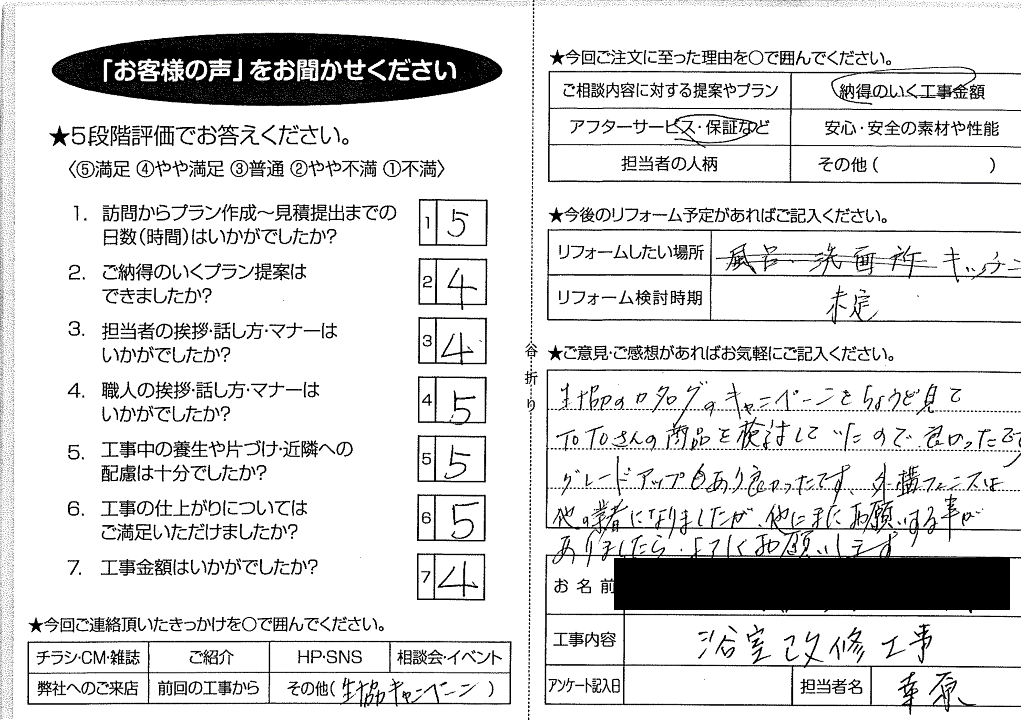 「お客様の声」をお聞かせください
★5段階評価でお答えください。
〈⑤満足 ④やや満足 ③普通 ②やや不満 ①不満〉
1. 訪問からプラン作成〜見積提出までの
日数(時間)はいかがでしたか?
1 5
2. ご納得のいくプラン提案は
できましたか?
2 4
3. 担当者の挨拶・話し方・マナーは
いかがでしたか?
3 4
4. 職人の挨拶・話し方・マナーは
いかがでしたか?
4 5
5. 工事中の養生や片づけ・近隣への
配慮は十分でしたか?
5 5
6. 工事の仕上がりについては
ご満足いただけましたか?
6 5
7. 工事金額はいかがでしたか?
7 4
★今回ご連絡頂いたきっかけを○で囲んでください。
チラシ・CM・雑誌 ご紹介 HP・SNS 相談会・イベント
弊社へのご来店 前回の工事から その他(生協キャンペーン)
谷折り
★今回ご注文に至った理由を○で囲んでください。
ご相談内容に対する提案やプラン 納得のいく工事金額
アフターサービス・保証など 安心・安全の素材や性能
担当者の人柄 その他( )
★今後のリフォーム予定があればご記入ください。
リフォームしたい場所 風呂・洗面所 キッチン
リフォーム検討時期 未定
★ご意見・ご感想があればお気軽にご記入ください。
生協のカタログのキャンペーンをちょうど見て
TOTOさんの商品を検討していたので良かったです
グレードアップもあり良かったです、外構フェンスは
他の業者になりましたが、他にまたお願いする事が
ありましたら、よろしくお願いします
お名前
工事内容 浴室改修工事
アンケート記入日 担当者名